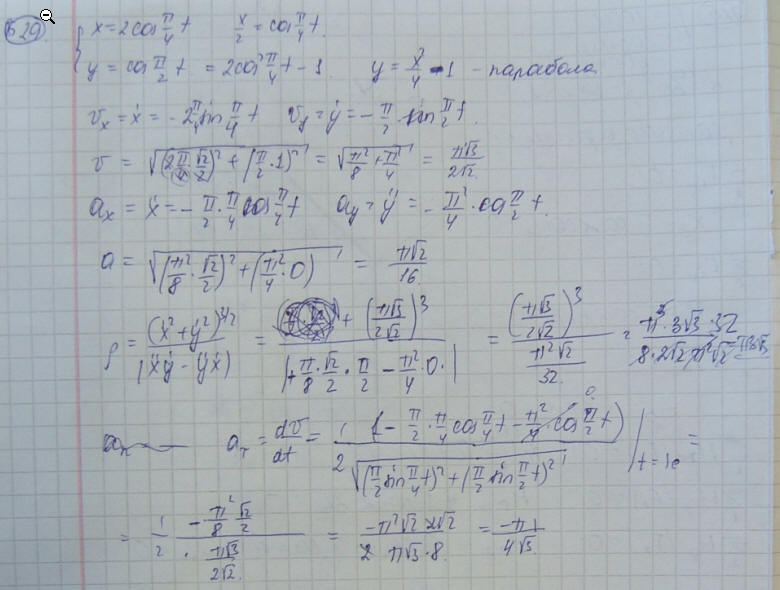 829.
x = 2cos π/4 t   x/2 = cos π/4 t.
y = cos π/2 t = 2cos² π/4 t - 1.   y = x²/4 - 1 - парабола
v_x = ẋ = -2 π/4 sin π/4 t   v_y = ẏ = - π/2 · sin π/2 t.
v = √((2π/4 · √2/2)² + (π/2 · 1)²) = √(π²/8 + π²/4) = π√3/2√2.
a_x = ẍ = - π/2 · π/4 cos π/4 t   a_y = ÿ = - π²/4 · cos π/2 t.
a = √((π²/8 · √2/2)² + (π²/4 · 0)) = π√2/16.
ρ = (ẋ² + ẏ²)^3/2 / |ẍẏ - ÿẋ| = + (π√3/2√2)³ / |+ π/8 · √2/2 · π/2 - π²/4 · 0 · | = (π√3/2√2)³ / (π²√2/32.) = π³ · 3√3 · 32 / 8 · 2√2 π²√2 =
a_τ = dv/dt = 1/2 (1 - π/2 · π/4 cos π/4 t - π²/4 · cos π/2 t) / √((π/2 sin π/4 t)² + (π/2 sin π/2 t)²) | t = 1c =
= 1/2 · (- π²/8 √2/2) / (π√3/2√2.) = -π²√2 2√2 / 2 π√3 · 8 = -π1/4√3.